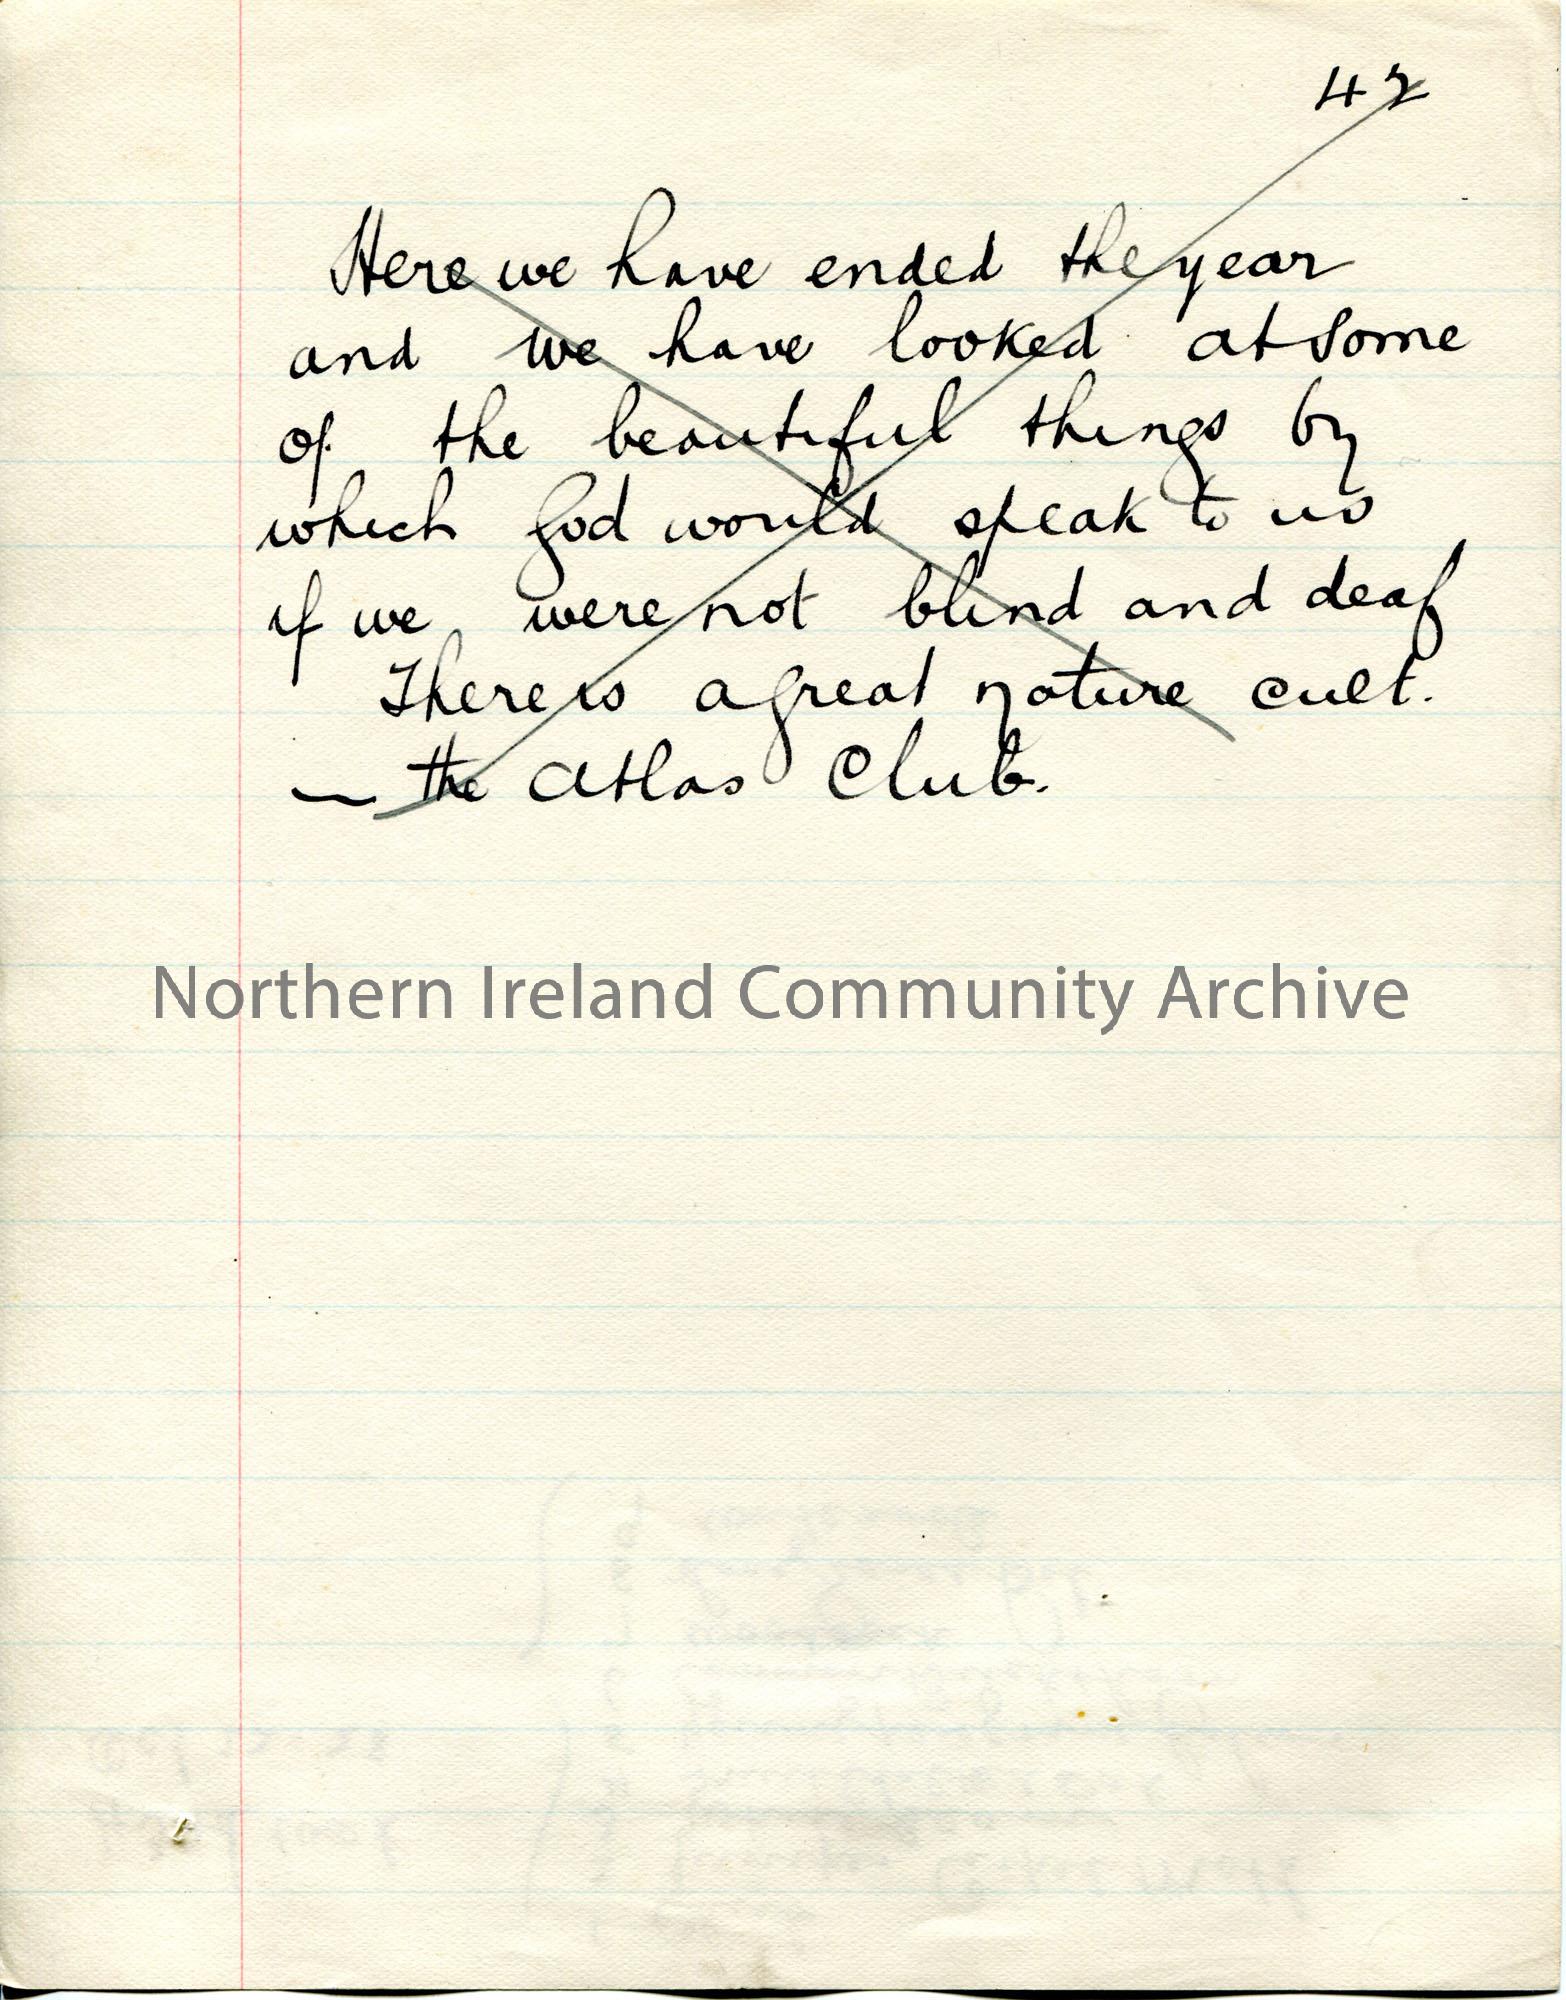 42
Here we have ended the year
and we have looked at some
of the beautiful things by
which God would speak to us
if we were not blind and deaf
There is a great nature cult.
— the Atlas Club.
Northern Ireland Community Archive